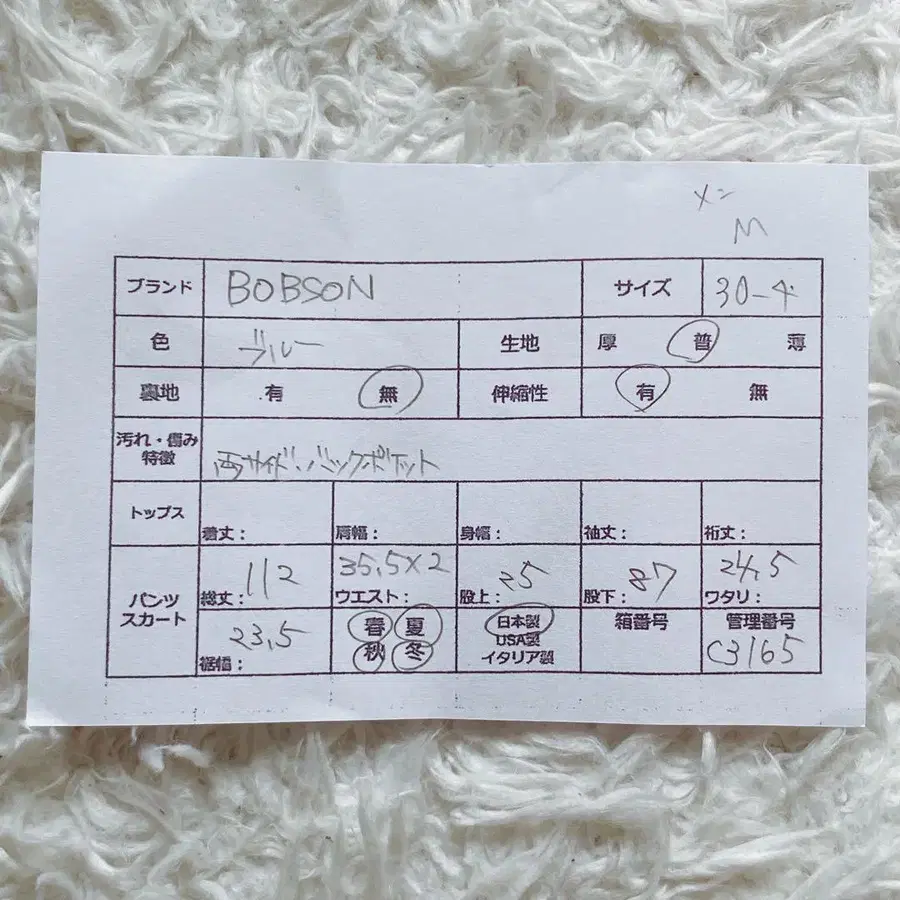 メン
M
ブランド BOBSON サイズ 30-4
色 ブルー 生地 厚 普 薄
裏地 有 無 伸縮性 有 無
汚れ・傷み
特徴 両サイド、バックポケット
トップス 着丈: 肩幅: 身幅: 袖丈: 裄丈:
パンツ
スカート
総丈: 112 ウエスト: 35.5×2 股上: 25 股下: 87 ワタリ: 24.5
裾幅: 23.5
春 夏
秋 冬
日本製
USA製
イタリア製
箱番号
管理番号
C3165